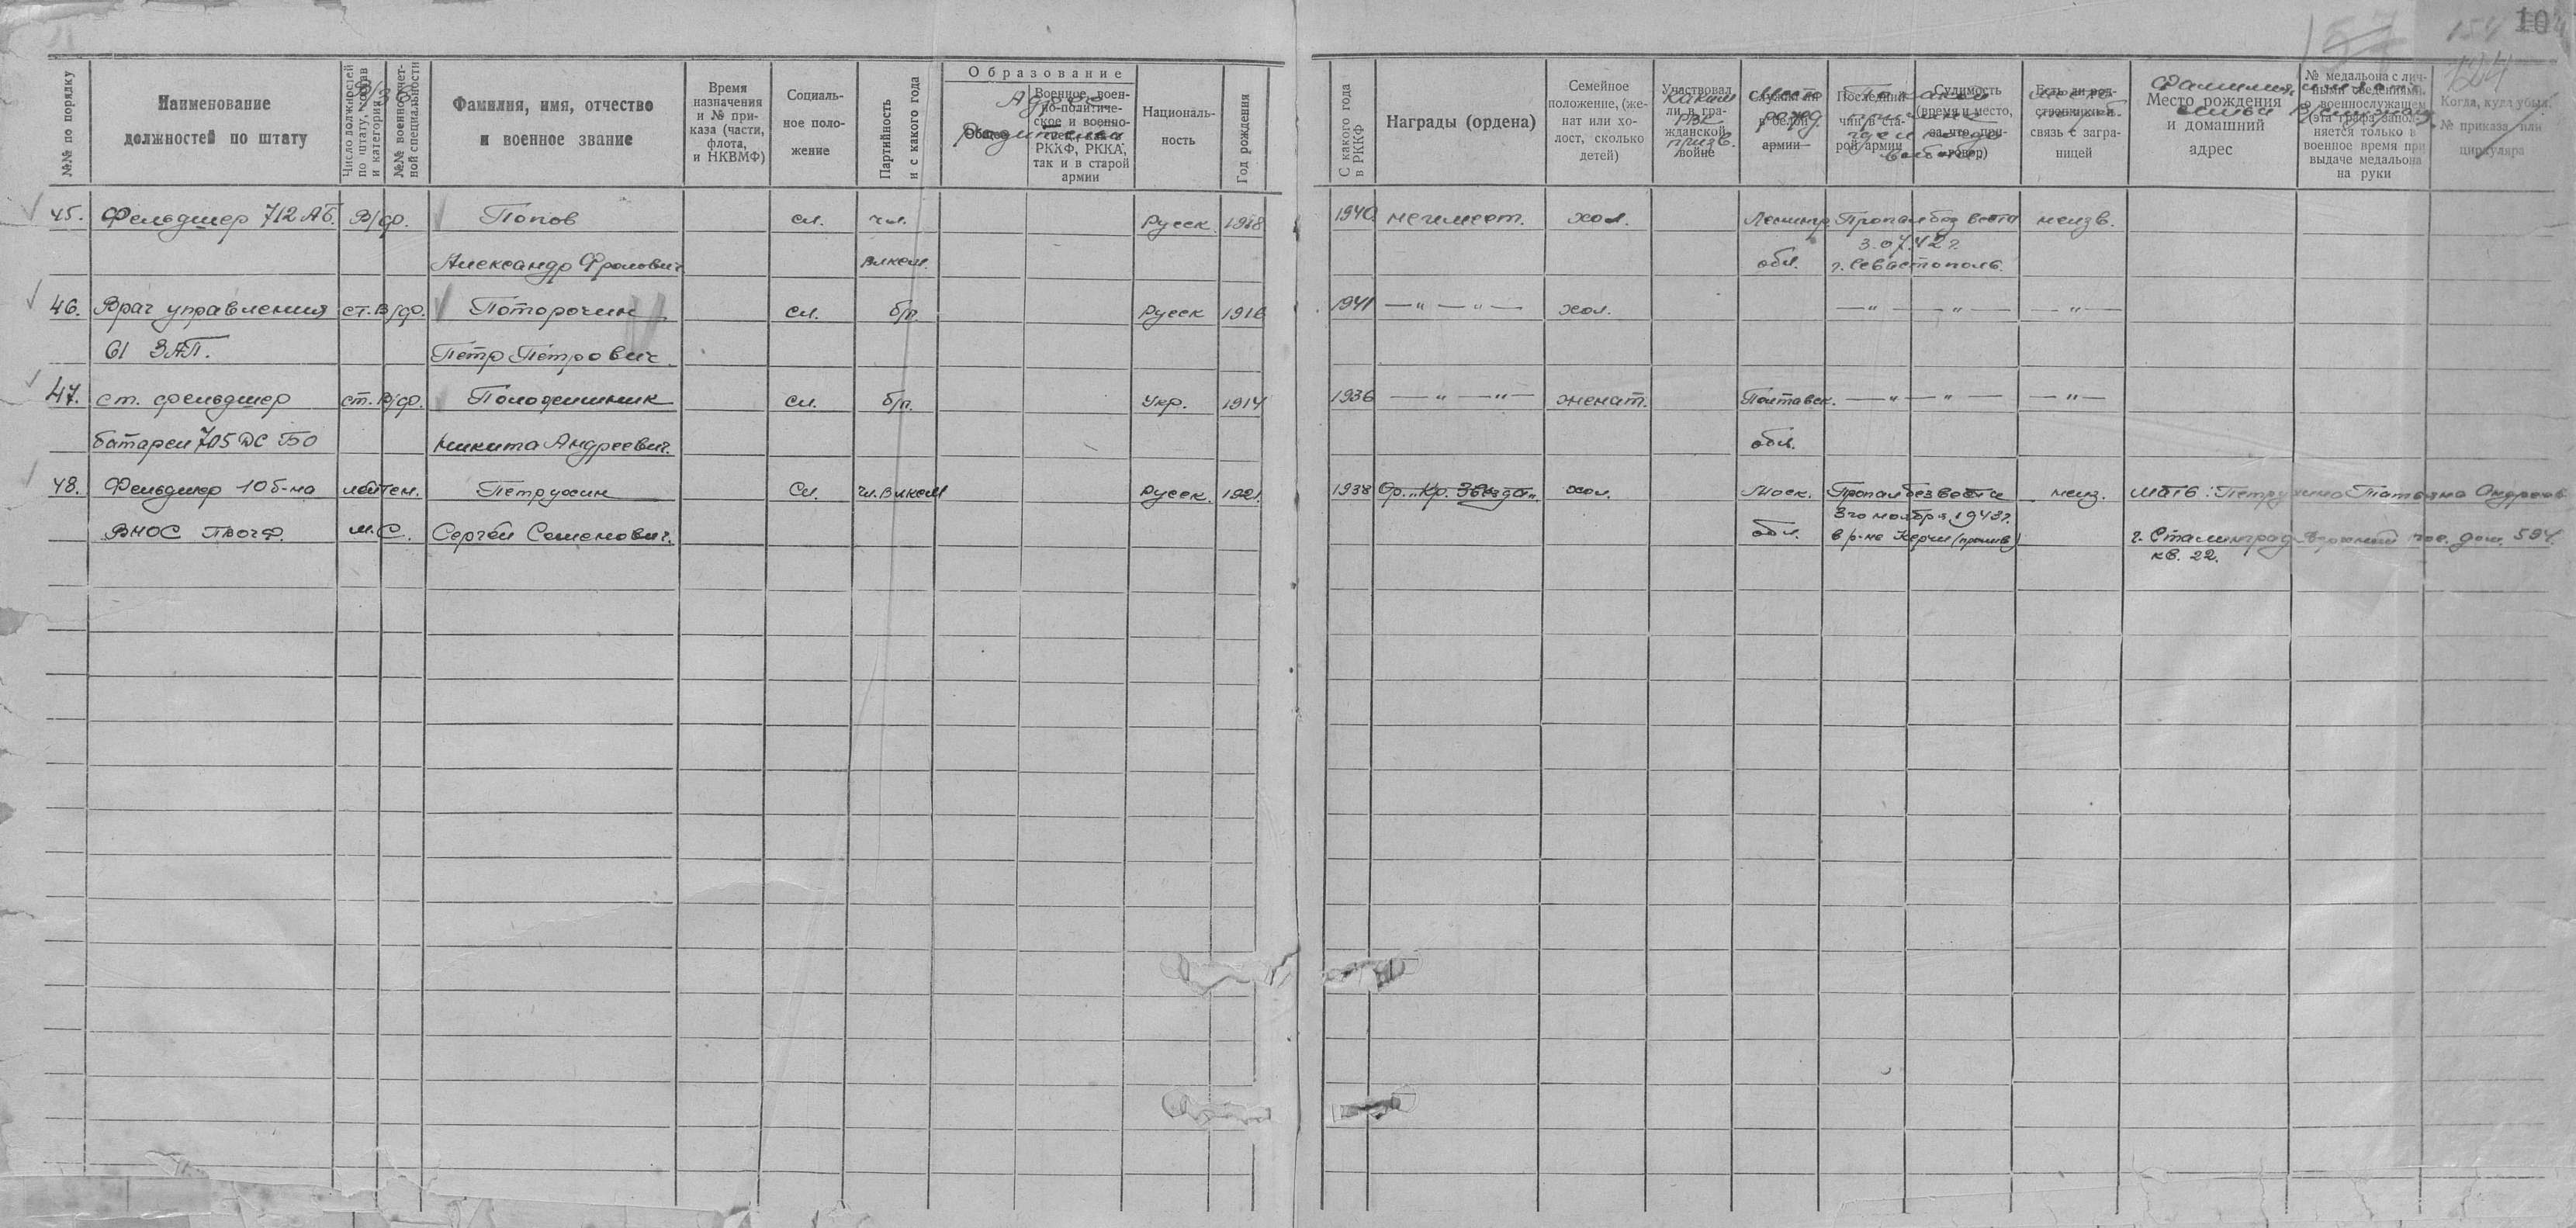 157 154 104
10
№№ по порядку
Наименование должностей по штату
Число должностей по штату, состав и категория
В/зв
№№ военно-учетной специальности
Фамилия, имя, отчество и военное звание
Время назначения и № приказа (части, флота, и НКВМФ)
Социальное положение
Партийность и с какого года
Образование
Адрес родителей
Общее
Военное, военно-политическое и военно-РККФ, РККА, так и в старой армии
Национальность
Год рождения
С какого года в РККФ
Награды (ордена)
Семейное положение, (женат или холост, сколько детей)
Участвовал ли в гражданской войне
Каким РВК призв.
Служил ли в белой армии
Место рожд.
Последний чин в старой армии
Судимость (время и место, за что, приговор)
По какой причине где и когда выбыл
Есть ли родственники и связь с заграницей
Место рождения и домашний адрес
Фамилия,
семьи
№ медальона с личными сведениями о военнослужащем (эта графа заполняется только в военное время при выдаче медальона на руки
Когда, куда убыл. № приказа или циркуляра
45. Фельдшер 712 АБ. В/ф. Попов сл. чл. Русск. 1918 1940 не имеет. хол. Ленингр. Пропал без вести неизв.
3.07.42 г.
Александр Фролович влксм. обл. г. Севастополь.
46. Врач управления ст. В/ф. Поторочин сл. б/п. Русск 1916 1941 — " — " — хол. — " — — " — — " —
61 ЗАП. Петр Петрович.
47. ст. фельдшер ст. В/ф. Полодешник сл. б/п. Укр. 1914 1936 — " — " — женат. Полтавск. — " — " — — " —
батареи 705 ДС БО Никита Андреевич. обл.
48. Фельдшер 10 б-на лейтен. Петрухин Сл. чл. влксм Русск. 1921 1938 Ор. „Кр. Звезда„. хол. Моск. Пропал без вести неиз. мать: Петрухина Татьяна Андреев
3го ноября 1943 г.
ВНОС ПВОЧФ. м.С. Сергей Семенович. обл. в р-не Керчи (пролив) г. Сталинград пос. дом. 594.
кв. 22.